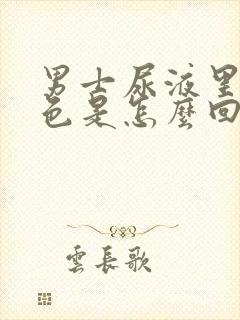 男士尿液呈
色是怎麼回
雲長歌